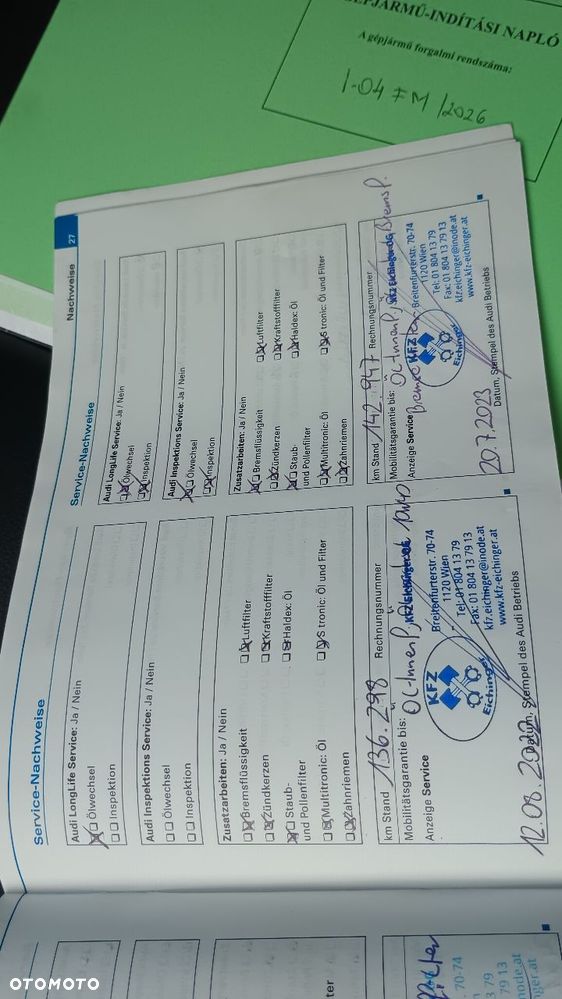 GÉPJÁRMŰ-INDÍTÁSI NAPLÓ
A gépjármű forgalmi rendszáma:
I-04 FM /2026
Nachweise 27
Service-Nachweise
Audi LongLife Service: Ja / Nein
Ölwechsel
Inspektion
Audi Inspektions Service: Ja / Nein
Ölwechsel
Inspektion
Zusatzarbeiten: Ja / Nein
Bremsflüssigkeit Luftfilter
Zündkerzen Kraftstofffilter
Staub- Haldex: Öl
und Pollenfilter
Multitronic: Öl S tronic: Öl und Filter
Zahnriemen
km Stand 136.298 Rechnungsnummer
Mobilitätsgarantie bis:
Anzeige Service
KFZ
Eichinger
KFZ Eichinger OG
Breitenfurterstr. 70-74
1120 Wien
Tel: 01 804 13 79
Fax: 01 804 13 79 13
kfz.eichinger@inode.at
www.kfz-eichinger.at
12.08.2022
Datum, Stempel des Audi Betriebs
Service-Nachweise
Audi LongLife Service: Ja / Nein
Ölwechsel
Inspektion
Audi Inspektions Service: Ja / Nein
Ölwechsel
Inspektion
Zusatzarbeiten: Ja / Nein
Bremsflüssigkeit Luftfilter
Zündkerzen Kraftstofffilter
Staub Haldex: Öl
und Pollenfilter
Multitronic: Öl S tronic: Öl und Filter
Zahnriemen
km Stand 142.947 Rechnungsnummer
Mobilitätsgarantie bis:
Anzeige Service
KFZ
Eichinger
KFZ Eichinger OG
Breitenfurterstr. 70-74
1120 Wien
Tel: 01 804 13 79
Fax: 01 804 13 79 13
kfz.eichinger@inode.at
www.kfz-eichinger.at
20.7.2023
Datum, Stempel des Audi Betriebs
OTOMOTO